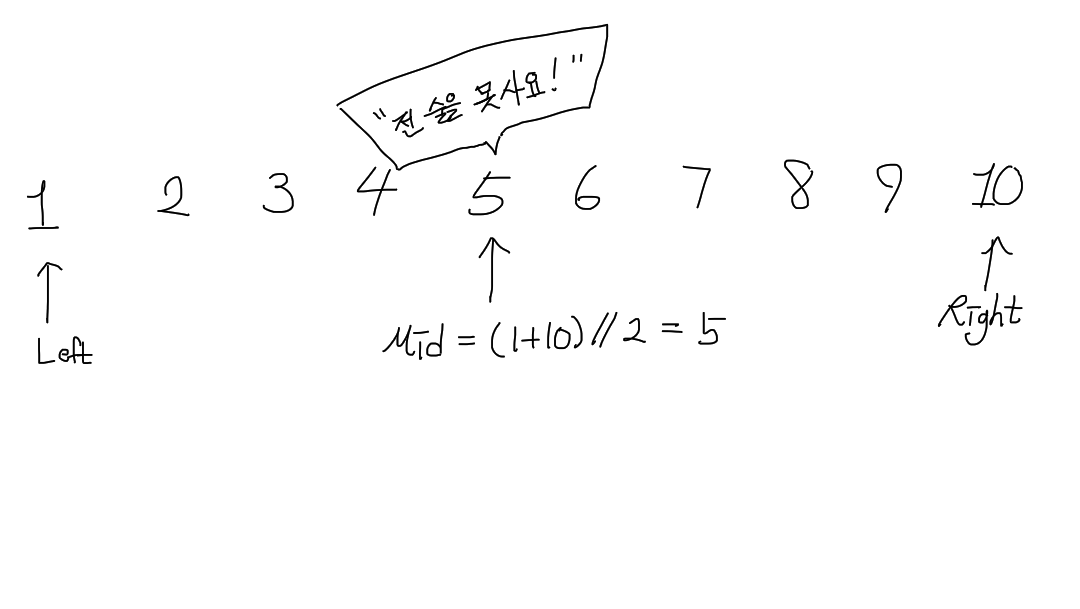 "전 술을 못사요!"
1 2 3 4 5 6 7 8 9 10
Left
Mid = (1+10)//2 = 5
Right